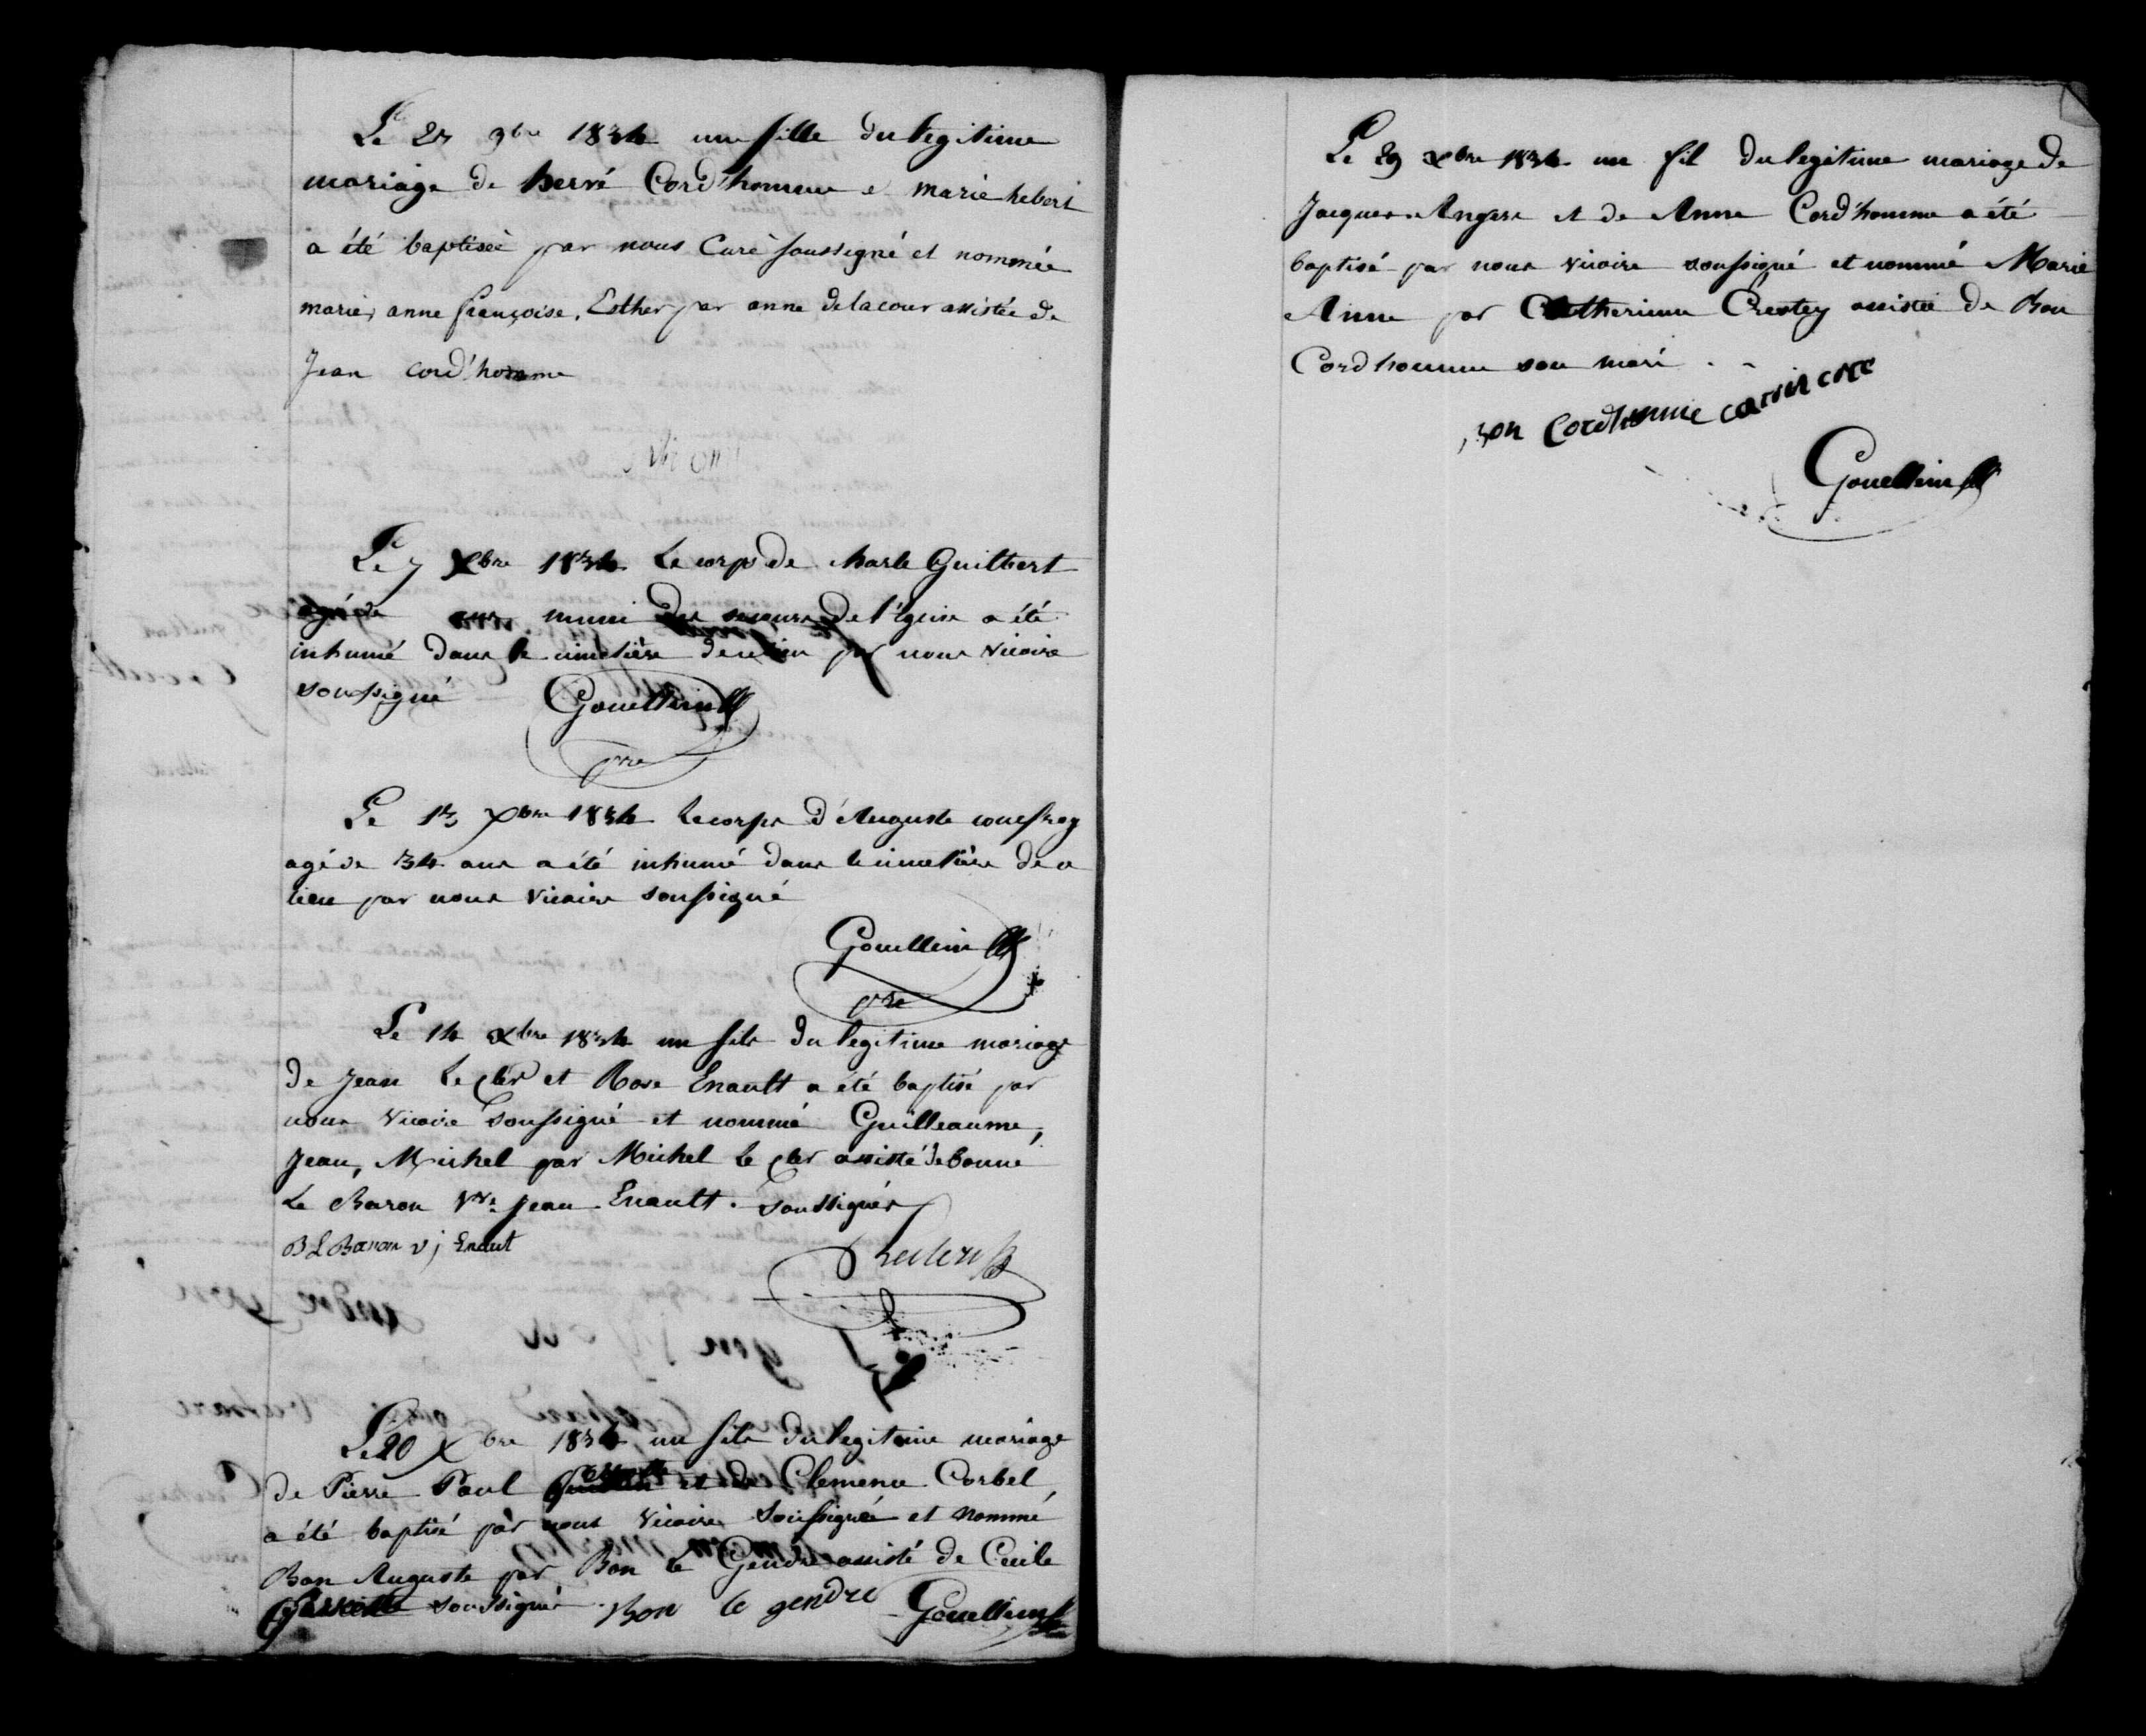 Le 27 9bre 1834 une fille du legitime
mariage de hervé Cord'homme e marie hebert
a été baptiseè par nous Curé soussegné et nommée
marie, anne françoise, Esther par anne delacour assistée de
Jean cord'homme
Le 7 Xbre 1834 Le corps de charle Guilbert
agé de ans muni des secours de l'Eglise a été
inhumé dans le cimetière de ce lieu par nous vicaire
soussigné Gouellain
pre
Le 13 Xbre 1834 Le corps d'Auguste couefrey
agé de 34 ans a été inhumé dans le cimetière de ce
lieu par nous vicaire soussigné
Gouellain
pre
Le 14 Xbre 1834 un fils du legitime mariage
de Jean Le cler et Rose Enault a été baptisé par
nous vicaire soussigné et nommé Guilleaume,
Jean, Michel par Michel le cler assisté de bonne
Le Baron Vve Jean Enault. soussignés
B L Baron v j Enaut
Leclerc
Le 20 Xbre 1834 un fils du legitime mariage
de Pierre Paul et de Clemence Corbel
a été baptisé par nous vicaire soussigné et nommé
Bon Auguste par Bon le Gendre assisté de Cecile
soussigné Bon le gendre Gouellain
Le 29 Xbre 1834 un fil du legitime mariage de
Jacques Angers et de Anne Cord'homme a été
baptisé par nous vicaire soussigné et nommé Marie
Anne par Catherinne Crestey assistée de Bon
Cordhomme son mari
Bon Cordhomme
Gouellain